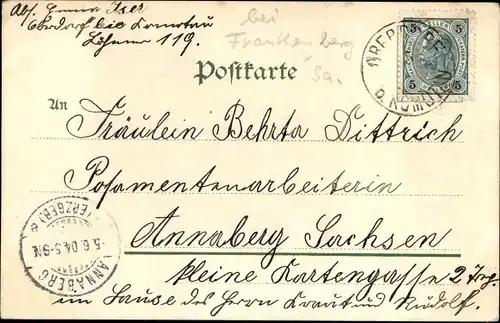 Abs. Emma
Oberdorf bei Komotau
Böhmen 119.
bei
Frankenberg
Sa.
Postkarte
5 5
An
Fräulein Behrta Dittrich
Posamentenarbeiterin
Annaberg Sachsen
kleine Kartengasse 2 Trp.
im Hause des Herrn Kraut und Rudolf.
ANNABERG
(ERZGEB.) e
5.6.04.5-6N